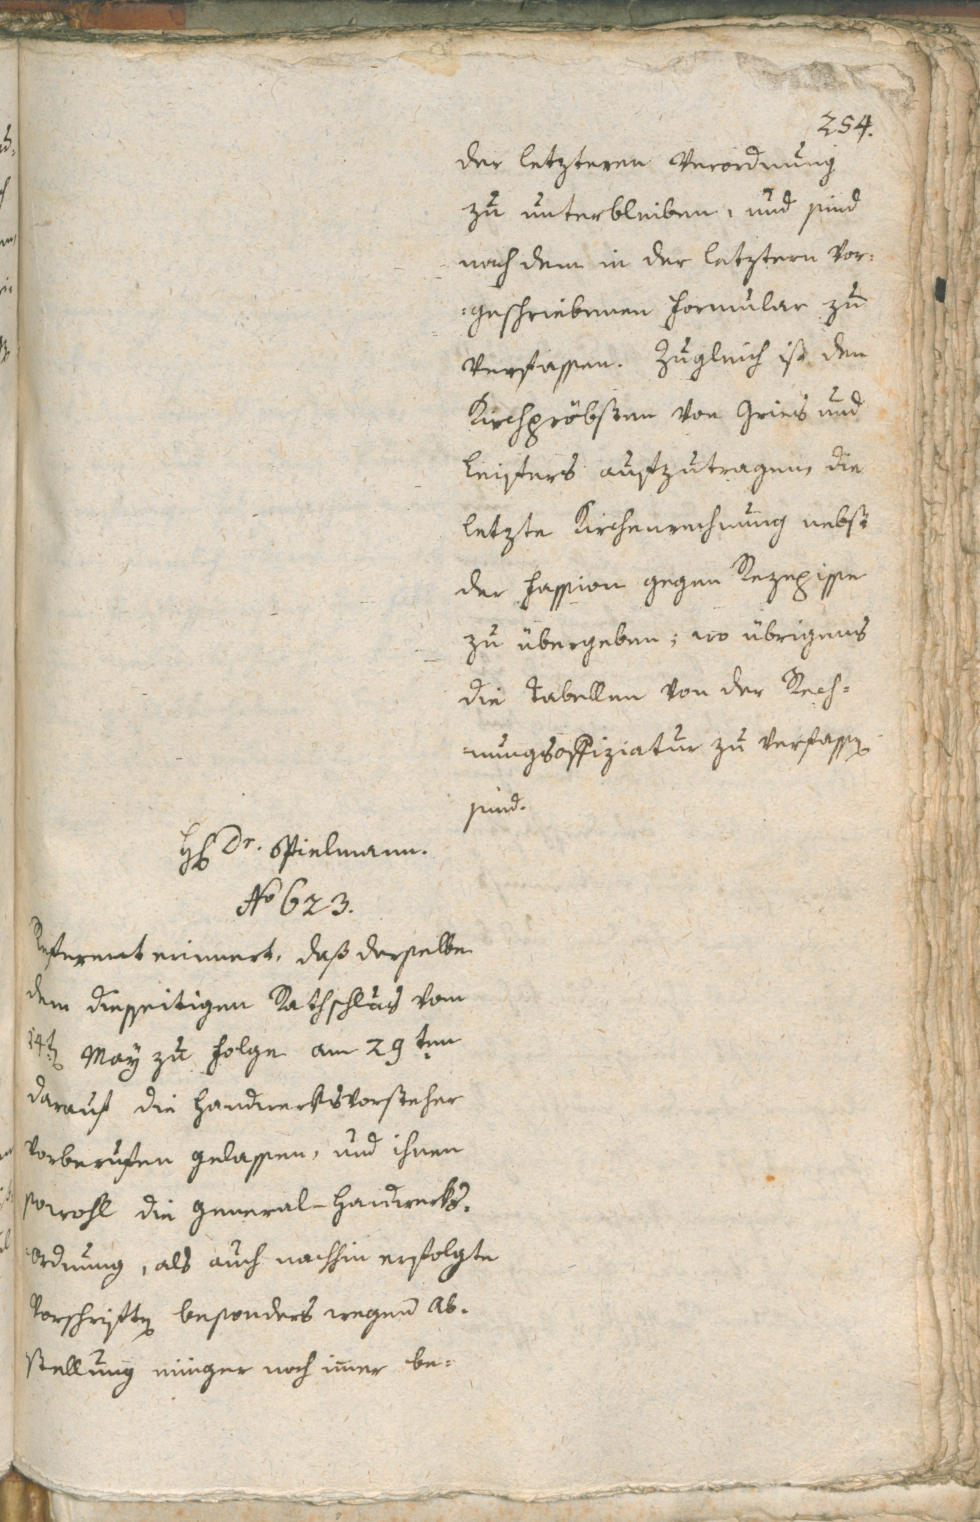 254.
der letzteren Verordnung
zu unterbleiben, und sind
nach dem in der letztern vor-
-geschriebenen Formular zu
verfassen. Zugleich ist den
Kirchpröbsten von Gries und
Leifers aufzutragen, die
letzte Kirchenrechnung nebst
der Fassion gegen Rezepisse
zu übergeben; wo übrigens
die Tabellen von der Rech-
-nungsoffiziatur zu verfassen
sind.
H. Dr. Spielmann.
No 623.
Referent erinnert, daß derselbe
dem diesseitigen Rathschlus vom
14ten May zu Folge am 29ten
darauf die Handwerksvorsteher
vorberufen gelassen, und ihnen
sowohl die General-Handwerks-
ordnung, als auch nachhin erfolgte
Vorschriften besonders wegen Ab-
stellung einiger noch immer be-